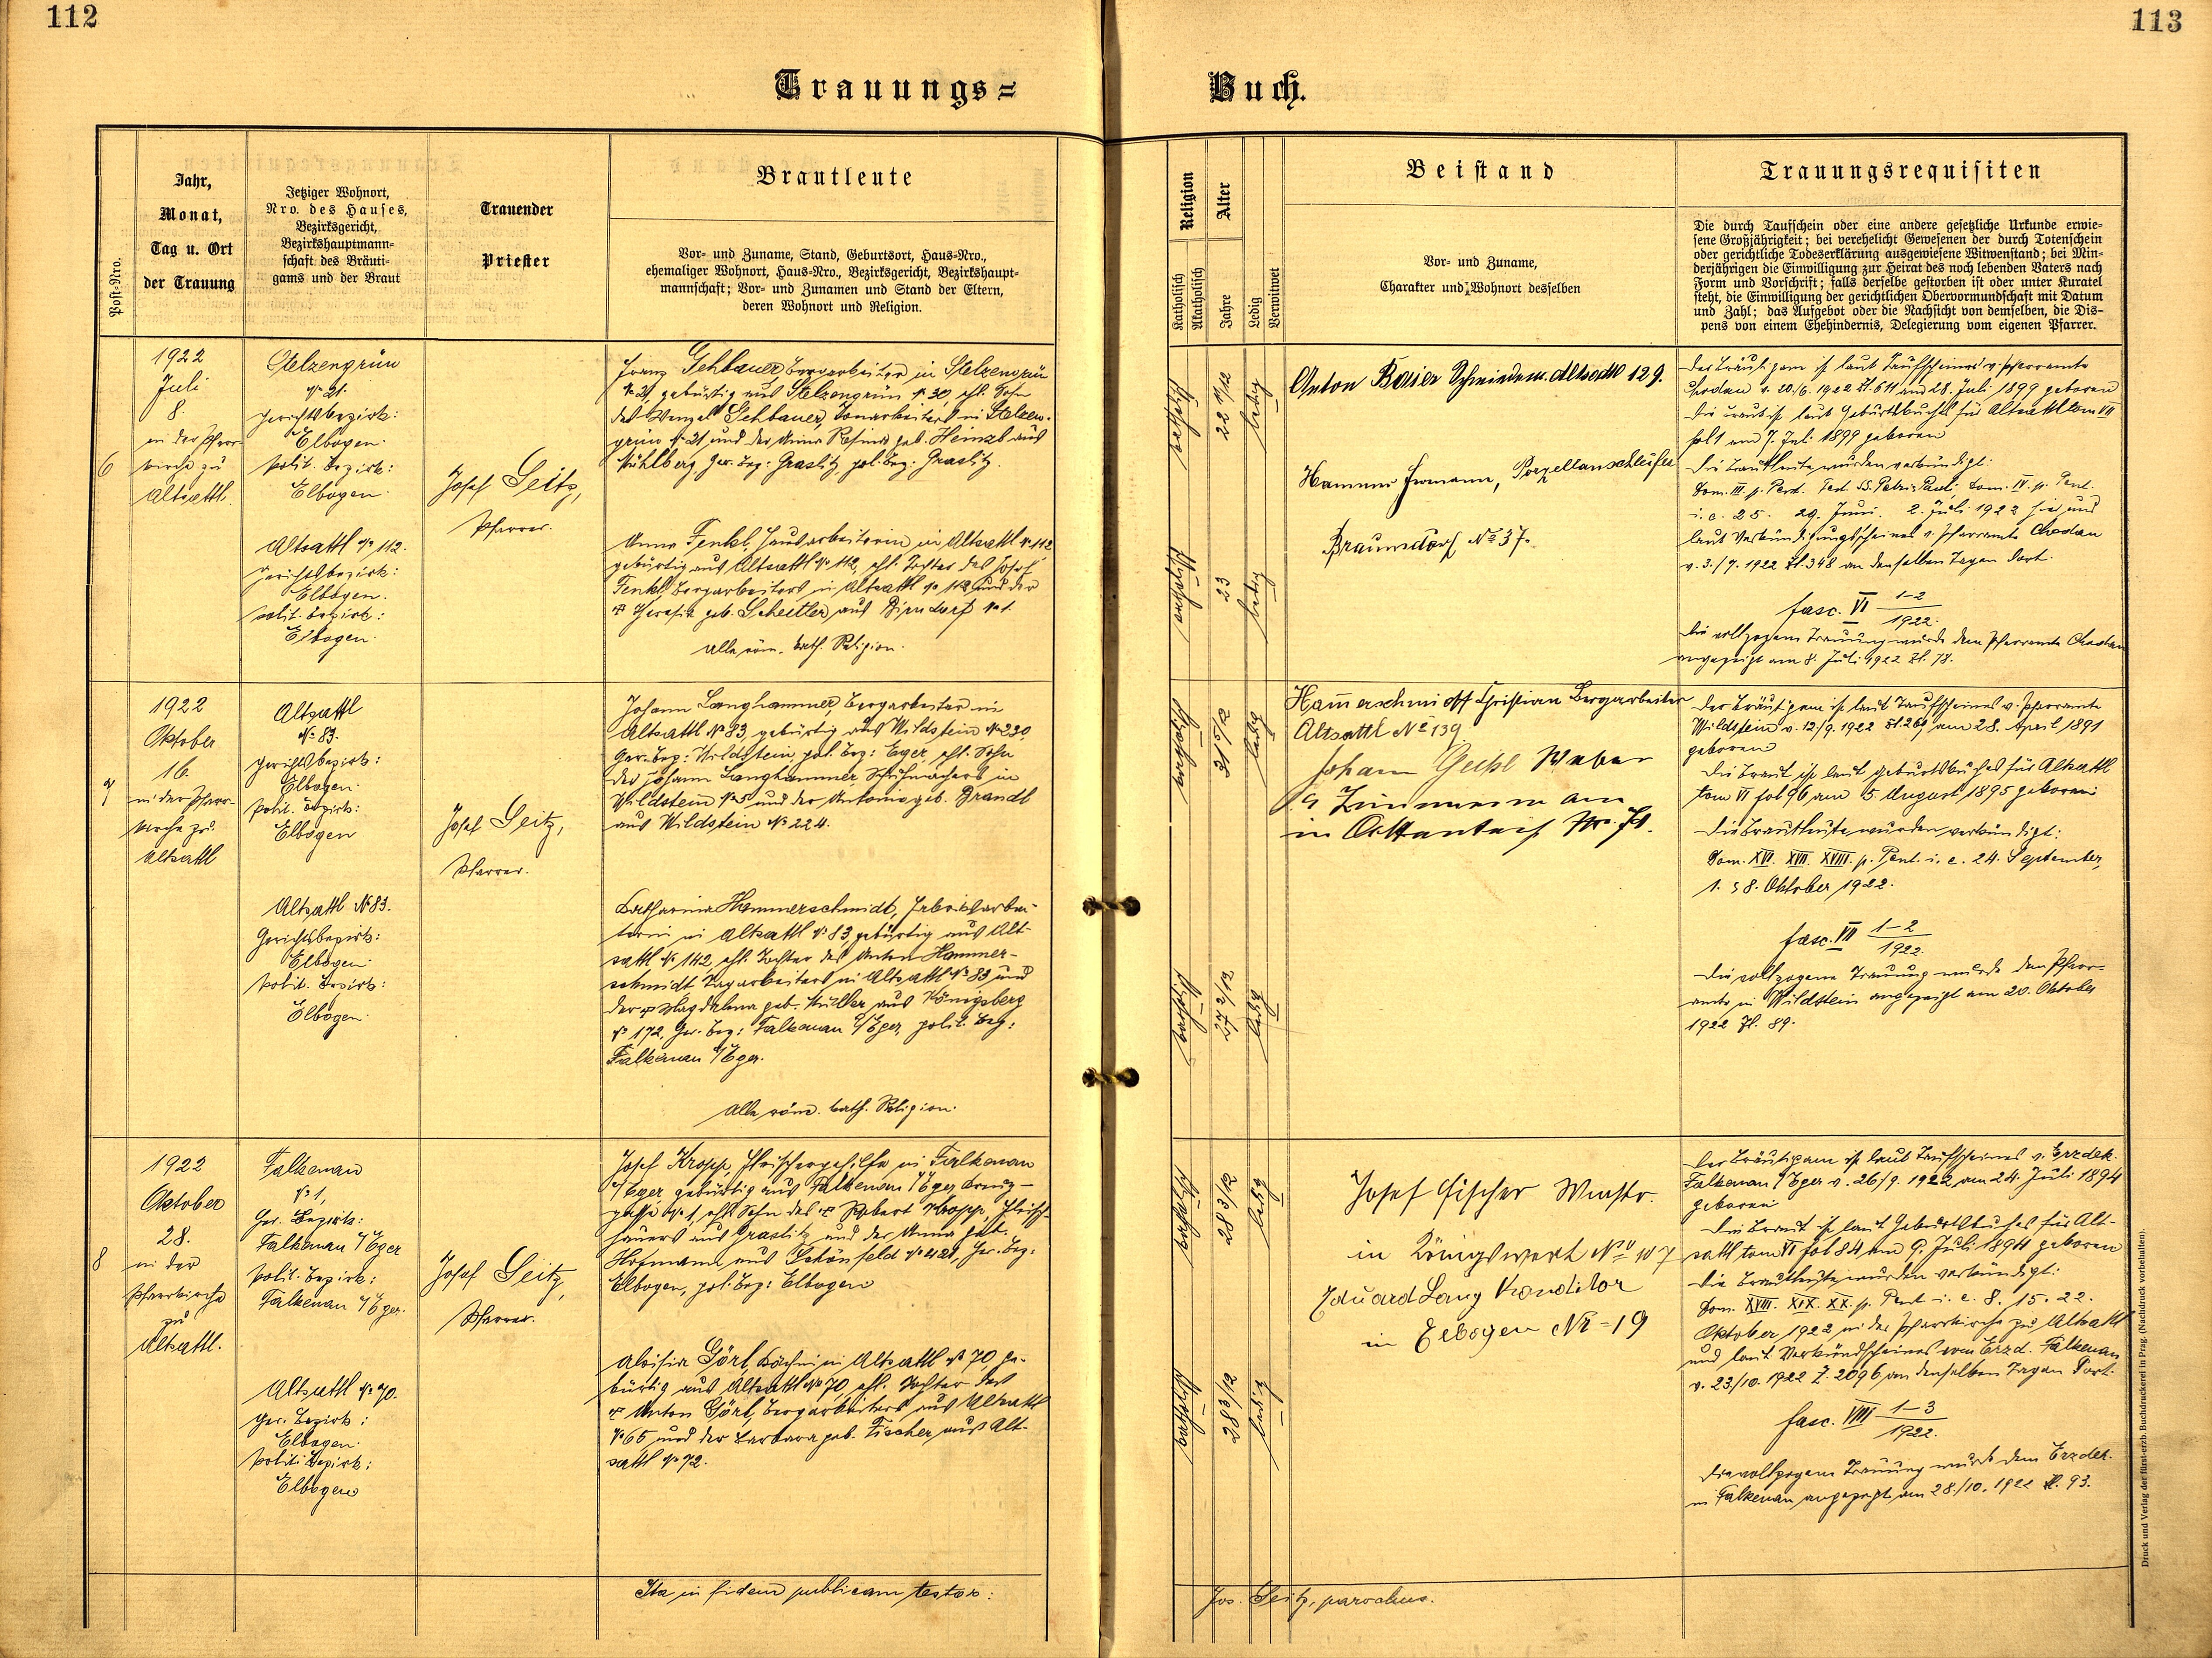 112
113
Trauungs=
Buch.
Post-Nro.
Jahr,
Monat,
Tag u. Ort
der Trauung
Jetziger Wohnort,
Nro. des Hauses,
Bezirksgericht,
Bezirkshauptmann-
schaft des Bräuti-
gams und der Braut
Trauender
Priester
Brautleute
Vor- und Zuname, Stand, Geburtsort, Haus-Nro.,
ehemaliger Wohnort, Haus-Nro., Bezirksgericht, Bezirkshaupt-
mannschaft; Vor- und Zunamen und Stand der Eltern,
deren Wohnort und Religion.
Religion
Katholisch
Akatholisch
Alter
Jahre
Ledig
Verwitwet
Beistand
Vor- und Zuname,
Charakter und Wohnort desselben
Trauungsrequisiten
Die durch Taufschein oder eine andere gesetzliche Urkunde erwie-
sene Großjährigkeit; bei verehelicht Gewesenen der durch Totenschein
oder gerichtliche Todeserklärung ausgewiesene Witwenstand; bei Min-
derjährigen die Einwilligung zur Heirat des noch lebenden Vaters nach
Form und Vorschrift; falls derselbe gestorben ist oder unter Kuratel
steht, die Einwilligung der gerichtlichen Obervormundschaft mit Datum
und Zahl; das Aufgebot oder die Nachsicht von demselben, die Dis-
pens von einem Ehehindernis, Delegierung vom eigenen Pfarrer.
6
1922
Juli
8.
in der Pfarr-
kirche zu
Altsattl.
Stelzengrün
No 21.
Gerichtsbezirk:
Elbogen.
polit. Bezirk:
Elbogen.
Altsattl No 112.
Gerichtsbezirk:
Elbogen.
polit. Bezirk:
Elbogen.
Josef Seitz,
Pfarrer.
Franz Sehbauer Bergarbeiter in Stelzengrün
No 21, gebürtig aus Stelzengrün No 30, ehl. Sohn
des Wenzel Sehbauer, Tonarbeiters in Stelzen-
grün No 21 und der Anna Rosina geb. Heinzl aus
Mühlberg, Ger. Bez: Graslitz, pol. Bez: Graslitz.
Anna Fenkl, Hausarbeiterin in Altsattl No 112
gebürtig aus Altsattl No 112, ehl. Tochter des Josef
Fenkl, Bergarbeiters in Altsattl No 112 und der
geb. Scheitler aus Birndorf No 1.
Alle röm. kath. Religion.
katholisch
22 11/12
ledig
katholisch
23
ledig
Anton Baier Schmiedem. Altsattl 129.
Hammer Hermann, Porzellanschleifer
Braunsdorf No 37.
Der Bräutigam ist laut Taufscheines v. Pfarramte
Chodau v. 20./6. 1922 Zl. 611 am 28. Juli 1899 geboren
Die Braut ist laut Geburtsbuches für Altsattl tom VII
fol 1 am 7. Juli 1899 geboren
Die Brautleute wurden verkündigt:
Dom. III. p. Pent. Fest. SS. Petri Pauli, Dom. IV. p. Pent.
i. e. 25. 29. Juni. 2. Juli 1922 hier und
laut Verkündigungsscheines v. Pfarramte Chodau
v. 3./7. 1922 Zl. 348 an denselben Tagen dort.
fasc. VI 1-2
1922.
Die vollzogene Trauung wurde dem Pfarramte Chodau
angezeigt am 8. Juli 1922 Zl. 78.
7
1922
Oktober
16.
in der Pfarr-
kirche zu
Altsattl
Altsattl
No 83.
Gerichtsbezirk:
Elbogen.
polit. Bezirk:
Elbogen
Altsattl No 83.
Gerichtsbezirk:
Elbogen.
polit. Bezirk:
Elbogen.
Josef Seitz,
Pfarrer.
Johann Langhammer, Bergarbeiter in
Altsattl No 83, gebürtig aus Wildstein No 230,
Ger. Bez: Wildstein, pol. Bez: Eger, ehl. Sohn
des Johann Langhammer Schuhmachers in
Wildstein No 5 und der Antonia geb. Brandl
aus Wildstein No 224.
Katharina Hammerschmidt, Fabriksarbei-
terin in Altsattl No 83, gebürtig aus Alt-
sattl No 142, ehl. Tochter des Anton Hammer-
schmidt Tagarbeiters in Altsattl No 83 und
der Magdalena geb. Müller aus Königsberg
No 172, Ger. Bez: Falkenau a/Eger, polit. Bez:
Falkenau a/Eger.
Alle röm. kath. Religion.
katholisch
31 5/12
ledig
katholisch
27 2/12
ledig
Hammerschmidt Christian Bergarbeiter
Altsattl No 139
Johann Geipl Weber
in No
Der Bräutigam ist laut Taufscheines v. Pfarramte
Wildstein v. 12/9. 1922 Zl. 261 am 28. April 1891
geboren
Die Braut ist laut Geburtsbuches für Altsattl
tom VI fol 96 am 5. August 1895 geboren
Die Brautleute wurden verkündigt:
Dom. XVI. XVII. XVIII. p. Pent. i. e. 24. September,
1. 8. Oktober 1922.
fasc. VII 1-2
1922.
Die vollzogene Trauung wurde dem Pfarr-
amte in Wildstein angezeigt am 20. Oktober
1922 Zl. 89.
8
1922
Oktober
28.
in der
Pfarrkirche
zu
Altsattl.
Falkenau
No 1,
Ger. Bezirk:
Falkenau a/Eger
polit. Bezirk:
Falkenau a/Eger.
Altsattl No 70.
Ger. Bezirk:
Elbogen.
polit. Bezirk:
Elbogen
Josef Seitz,
Pfarrer.
Josef Kropp, Fleischergehilfe in Falkenau
a/Eger gebürtig aus Falkenau a/Eger Kreuz-
gasse No 1, ehl. Sohn des Robert Kropp, Fleisch-
hauers aus Graslitz und der Anna geb.
Hofmann aus Schönfeld No 421, Ger. Bez:
Elbogen, pol. Bez: Elbogen
Aloisia Görl, Köchin in Altsattl No 70, ge-
bürtig aus Altsattl No 70, ehl. Tochter des
Anton Görl, Bergarbeiters aus Altsattl
No 65 und der Barbara geb. Fischer aus Alt-
sattl No 72.
katholisch
28 3/12
ledig
katholisch
28 3/12
ledig
Josef Fischer
in Königswert No 107
Eduard Lang Konditor
in Elbogen No 19
Der Bräutigam ist laut Taufscheines v. Erzdek.
Falkenau a/Eger v. 26/9. 1922 am 24. Juli 1894
geboren
Die Braut ist laut Geburtsbuches für Alt-
sattl tom VI fol 84 am 9. Juli 1894 geboren
Die Brautleute wurden verkündigt:
Dom. XVIII. XIX. XX. p. Pent i. e. 8. 15. 22.
Oktober 1922 in der Pfarrkirche zu Altsattl
und laut Verkündscheines vom Erzd. Falkenau
v. 23./10. 1922 Z. 2096 an denselben Tagen dort.
fasc. VIII 1-3
1922.
Die vollzogene Trauung wurde dem Erzdek.
in Falkenau angezeigt am 28./10. 1922 Zl. 93.
Ita in fidem publicam testor:
Jos. Seitz, parochus.
Druck und Verlag der fürst-erzb. Buchdruckerei in Prag. (Nachdruck vorbehalten).